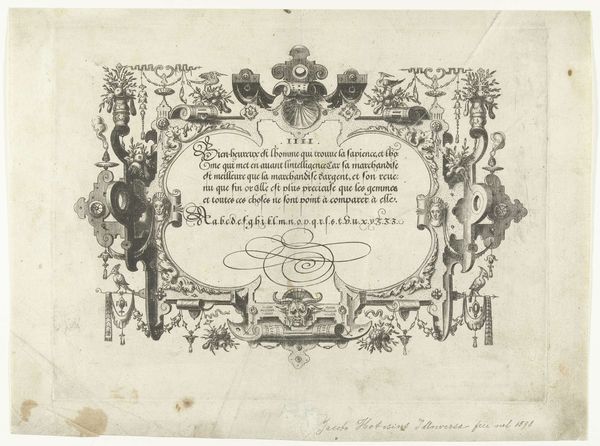 IIII.
Bien-heureux est l'homme qui trouve la sapience, et l'hõ
me qui met en auant l'intelligence Car sa marchandise
est meilleure que la marchandise d'argent, et son reue-
nu que fin or Elle est plus precieuse que les gemmes
et toutes ces choses ne sont point à comparer à elle.
A a.b.c.d.e.f.g.h.i.k.l.m.n.o.p.q.r.s.s.t.v.u.x.y.z.z.z.
Jacob Hoefnagel d'Anversa fece nel 1591